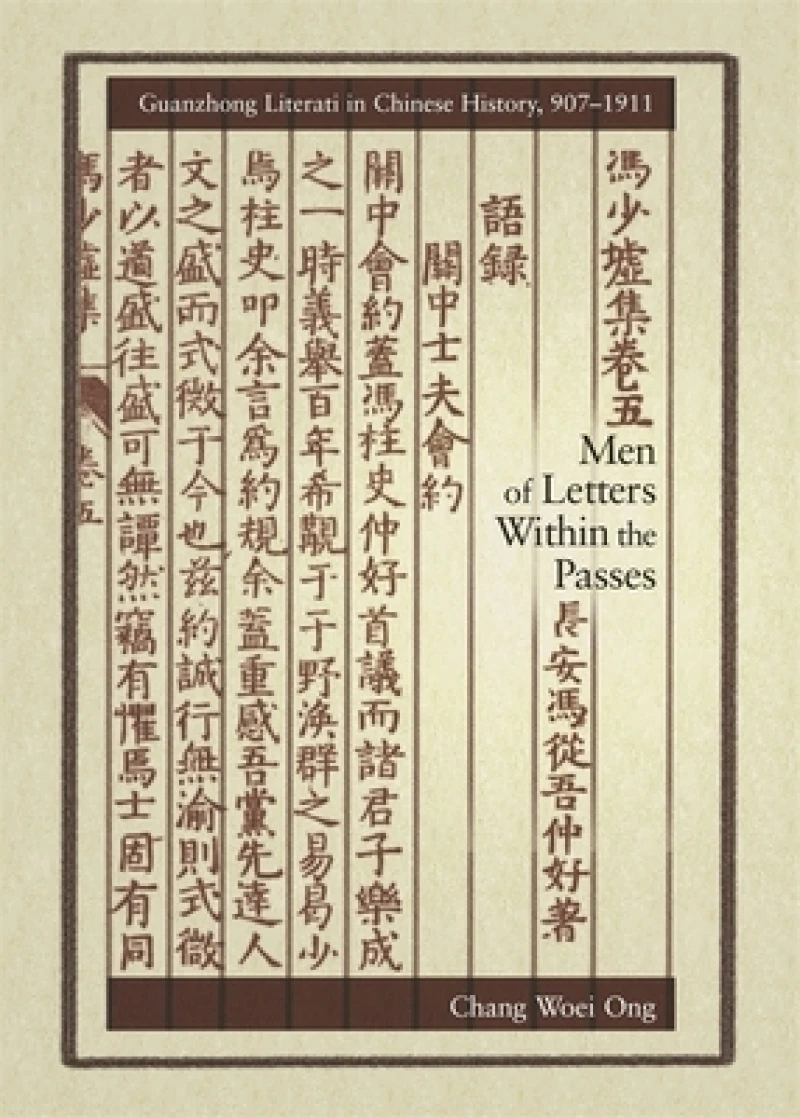 Guanzhong Literati in Chinese History, 907–1911
馮少墟集卷五
長安馮從吾仲好著
語録
關中士夫會約
關中會約蓋馮柱史仲好首議而諸君子樂成
之一時義舉百年希覯于于野渙群之易曷少
焉柱史叩余言爲約規余蓋重感吾黨先達人
文之盛而式微于今也兹約誠行無渝則式微
者以道盛往盛可無譚然竊有懼焉士固有同
馮少墟集
卷五
Men
of Letters
Within the
Passes
Chang Woei Ong